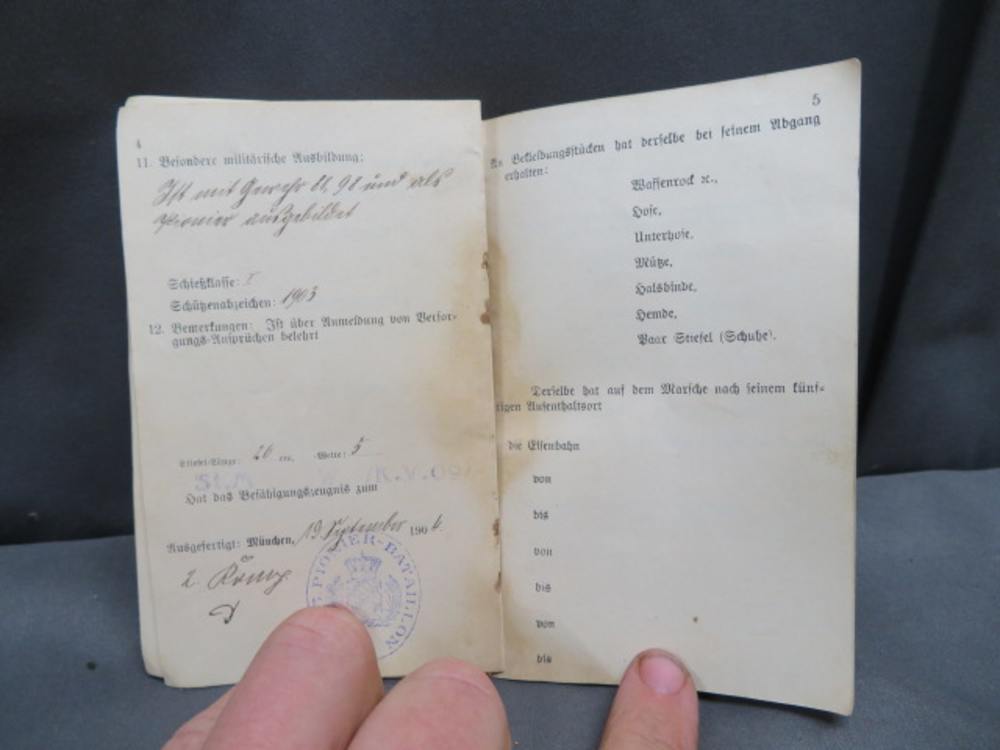 4
11. Besondere militärische Ausbildung:
Ist mit Gewehr 88, 98 und als
Pionier ausgebildet
Schießklasse: I
Schützenabzeichen: 1903
12. Bemerkungen: Ist über Anmeldung von Versor-
gungs-Ansprüchen belehrt
Stiefel-Länge: 26 cm, Weite: 5
(K.V.09)
Hat das Befähigungszeugnis zum
Ausgefertigt: München, 19 September 1904.
2. Komp.
PIONIER-BATAILLON
5
An Bekleidungsstücken hat derselbe bei seinem Abgang
erhalten:
Waffenrock ꝛc.,
Hose,
Unterhose,
Mütze,
Halsbinde,
Hemde,
Paar Stiefel (Schuhe).
Derselbe hat auf dem Marsche nach seinem künf-
tigen Aufenthaltsort
die Eisenbahn
von
bis
von
bis
von
bis